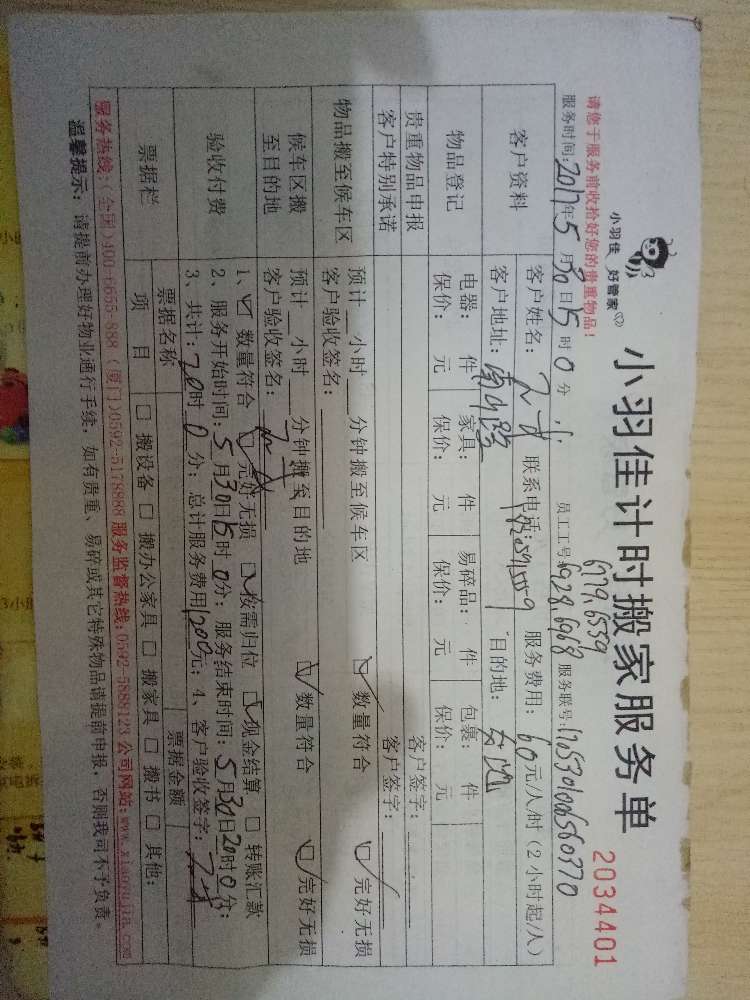 小羽佳 好管家
小羽佳计时搬家服务单
2034401
请您于服务前收拾好您的贵重物品!
6779,6559
服务时间:2017年5月30日15时0分 员工工号:6928,6968 服务联号:
客户资料
客户姓名: 联系电话: 服务费用:60元/人/时(2小时起/人)
客户地址: 目的地:
物品登记
电器: 件 家具: 件 易碎品: 件 包裹: 件
保价: 元 保价: 元 保价: 元 保价: 元
贵重物品申报 客户签字:
客户特别承诺 客户签字:
物品搬至候车区
预计 小时 分钟搬至候车区 数量符合 完好无损
客户验收签名:
候车区搬至目的地
预计 小时 分钟搬至目的地 数量符合 完好无损
客户验收签名:
验收付费
1、 数量符合 完好无损 按需归位 现金结算 转账汇款
2、服务开始时间:5月30日15时0分;服务结束时间:5月30日20时0分;
3、共计:20时0分;总计服务费用1200元;4、客户验收签字:
票据栏
票据名称 票据金额
项目 □ 搬设备 □ 搬办公家具 □ 搬家具 □ 搬书 □ 其他:
服务热线:(全国)400-6655-888 (厦门)0592-5178888 服务监督热线:0592-5888123 公司网站:www.xiaoyujia.com
温馨提示:请提前办理好物业通行手续,如有贵重、易碎或其它特殊物品请提前申报,否则我司不予负责。